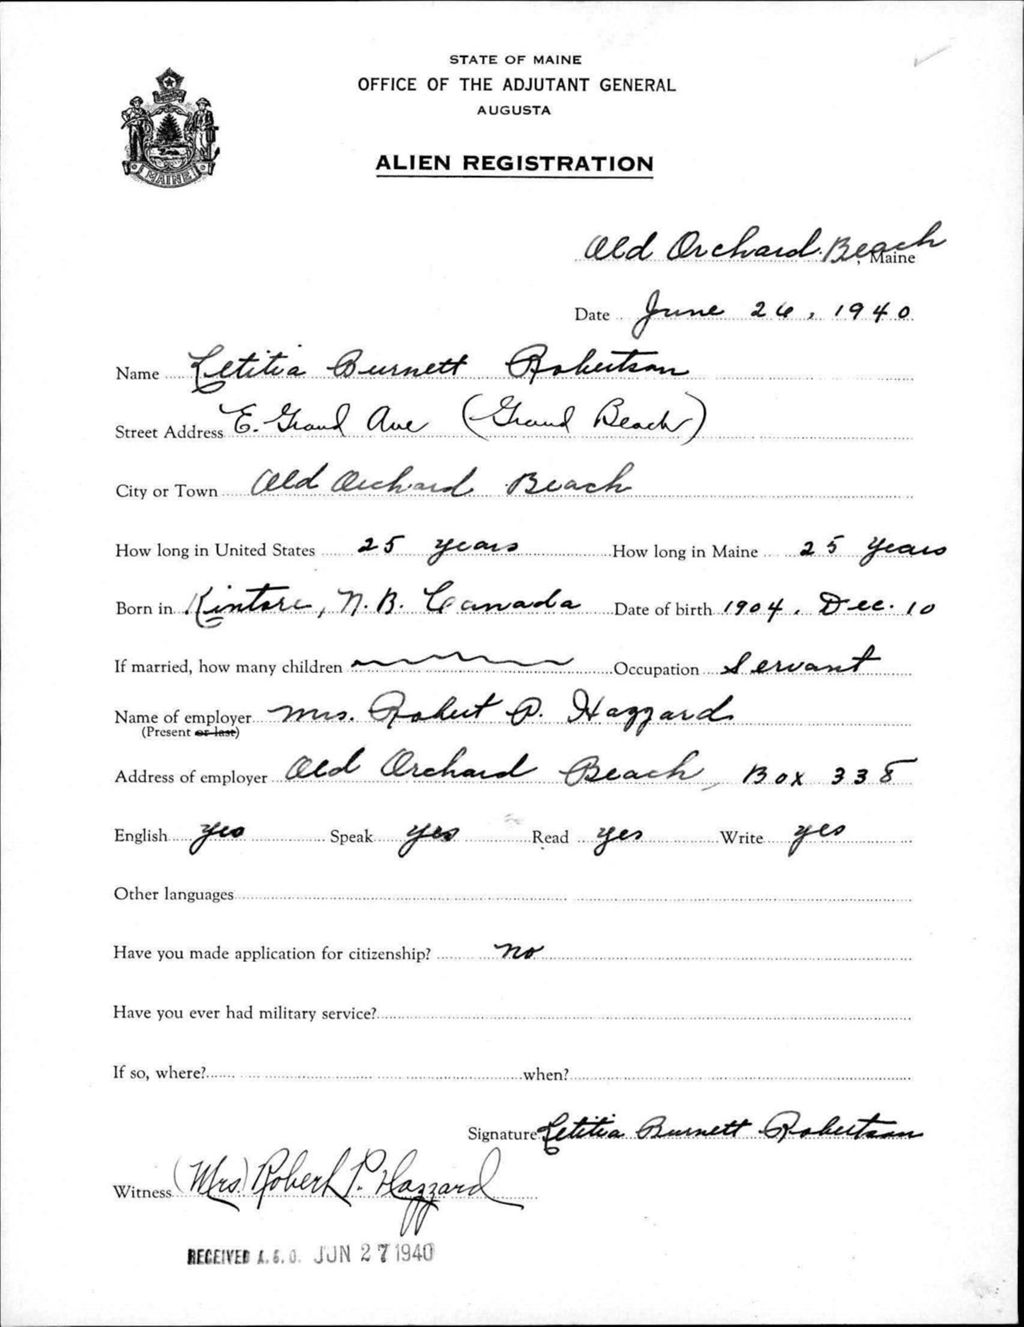 STATE OF MAINE
OFFICE OF THE ADJUTANT GENERAL
AUGUSTA
ALIEN REGISTRATION
MAINE
Old Orchard Beach, Maine
Date June 26, 1940
Name Letitia Burnett Robertson
Street Address E. Grand Ave (Grand Beach)
City or Town Old Orchard Beach
How long in United States 25 years How long in Maine 25 years
Born in Kintore, N.B. Canada Date of birth 1904. Dec. 10
If married, how many children Occupation Servant
Name of employer Mrs. Robert P. Hazzard
(Present or last)
Address of employer Old Orchard Beach, Box 338
English yes Speak yes Read yes Write yes
Other languages
Have you made application for citizenship? no
Have you ever had military service?
If so, where? when?
Signature Letitia Burnett Robertson
Witness (Mrs.) Robert P. Hazzard
RECEIVED A.G.O. JUN 27 1940